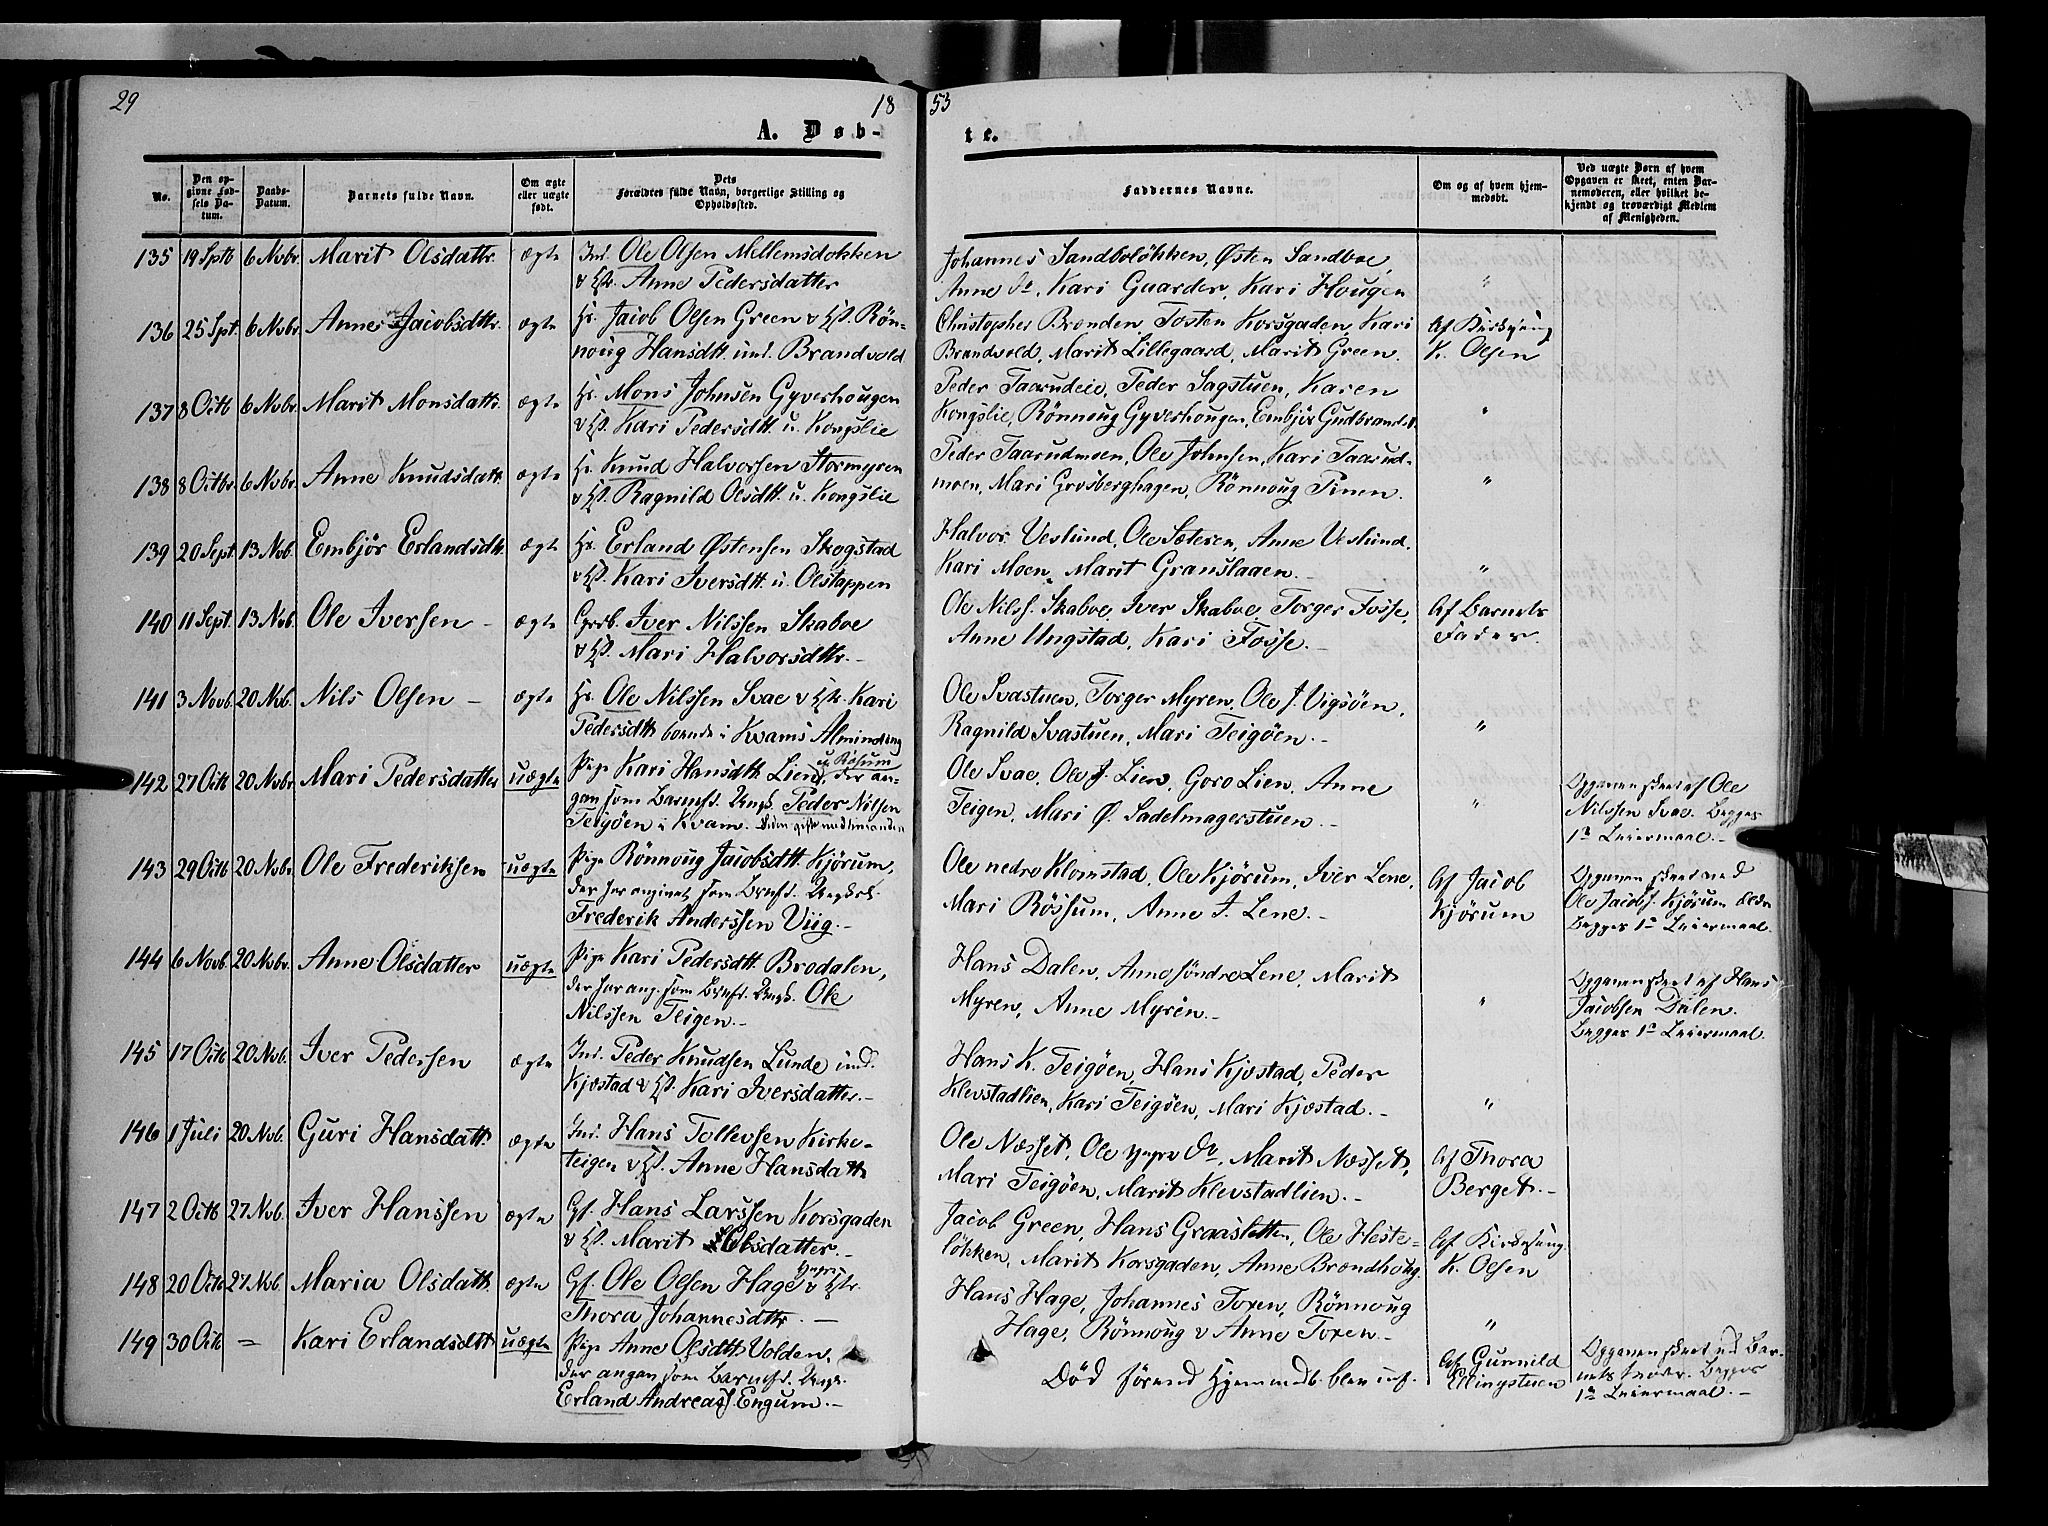 29
18
53
A. Døb-
te.
No.
Den op-
givne Fød-
sels Da-
tum.
Daabs-
Datum.
Barnets fulde Navn.
Om ægte
eller uægte
født.
Dets
Forældres fulde Navn, borgerlige Stilling og
Opholdssted.
Faddernes Navne.
Om og af hvem hjem-
medøbt.
Ved uægte Børn af hvem
Opgaven er skeet, enten Bar-
nemoderen, eller hvilket be-
kjendt og troværdigt Medlem
af Menigheden.
135 19 Sptb 6 Novbr. Marit Olsdattr. ægte Ind. Ole Olsen Mellemsdokken
v Hst. Anne Pedersdatter
Johannes Sandboløkken, Østen Sandboe,
Anne do, Kari Gaarder, Kari Hougen "
136 25 Spt. 6 Novbr. Anne Jacobsdttr. ægte Hr. Jacob Olsen Green v Hst. Rön-
noug Hansdtt. und. Brandvold
Christopher Brenden, Tosten Korsgaden, Kari
Brandvold, Marit Lillegaard, Marit Green.
Af Kirkesang
K. Olsen
137 8 Octb 6 Novbr. Marit Monsdattr. ægte Hr. Mons Johnsen Gyverhougen
v Hst. Kari Pedersdtt. u. Kongslie
Peder Taarudeie, Peder Sagstuen, Karen
Kongslie, Rönnoug Gyverhougen, Embjör Gudbrandsd. "
138 8 Octbr. 6 Novbr. Anne Knudsdatt. ægte Hr. Knud Halvorsen Stormyren
v Hst. Ragnild Olsdtt. u. Kongslie
Peder Taarudmoen, Ole Johnsen, Kari Taarud-
moen, Mari Grosberghagen, Rönnoug Tinen. "
139 20 Sept. 13 Nov. Embjör Erlandsdtt. ægte Hr. Erland Østensen Skogstad
v Hst. Kari Iversdtt. u. Olstappen
Halvor Veslund, Ole Sæteren, Anne Veslund.
Kari Moen, Marit Granslaaen. "
140 11 Sept. 13 Nov. Ole Iversen - ægte Grb. Iver Nilssen Skaboe
v Hst. Mari Halvorsdttr. -
Ole Nilss. Skaboe, Iver Skaboe, Torger Fosse,
Anne Ungstad, Kari Fosse. -
Af Barnets
Fader.
141 3 Novb. 20 Nvb. Nils Olsen - ægte Hr. Ole Nilssen Svae v Hstr. Kari
Pedersdtt. boende i Kvams Alminding
Ole Svastuen, Torger Myren, Ole J. Vigsöen,
Ragnild Svastuen, Mari Teigöen. - "
u. Rösum
142 27 Octb 20 Novbr. Mari Pedersdatter uægte Pige Kari Hansdtt. Lien, der an-
gav som Barnefd. Ungk. Peder Nilsen
Teigöen i Kvam. Siden gift med hinanden
Ole Svae, Ole J. Lien, Goro Lien, Anne
Teigen, Mari Ø. Sadelmagerstuen. - "
Opgaven skeet af Ole
Nilssen Svae. Begges
1ste Leiermaal. -
143 29 Octb 20 Novbr. Ole Frederiksen uægte Pige Rönnoug Jacobsdtt. Kjörum,
der har angivet som Barnefd. Ungkarl
Frederik Anderssen Viig. -
Ole nedre Klomstad, Ole Kjörum, Iver Lene,
Mari Rössum, Anne J. Lene. -
Af Jacob
Kjörum
Opgaven skeet ved
Ole Jacobs. Kjörum
Begges 1ste Leiermaal.
144 6 Novb. 20 Novbr. Anne Olsdatter uægte Pige Kari Pedersdtt. Brodalen,
der har ang. som Barnefd. Ungk. Ole
Nilssen Teigen. -
Hans Dalen, Anne söndre Lene, Marit
Myren, Anne Myren. - "
Opgaven skeet af Hans
Jacobsen Dalen.
Begges 1ste Leiermaal.
145 17 Octb 20 Novb. Iver Pedersen ægte Ind. Peder Knudsen Lunde und.
Kjæstad v Hst. Kari Iversdatter. -
Hans K. Teigöen, Hans Kjæstad, Peder
Klevstadlien, Kari Teigöen, Mari Kjæstad. - "
146 1 Juli 20 Nvb. Guri Hansdatt. ægte Ind. Hans Tollevsen Kirke-
teigen v Hst. Anne Hansdatt.
Ole Næsset, Ole yngre do, Marit Næsset,
Mari Teigöen, Marit Klevstadlien. -
Af Thora
Berget. -
147 2 Octb 27 Nvb. Iver Hanssen ægte Gf. Hans Larssen Korsgaden
v Hst. Marit Olsdatter. -
Jacob Green, Hans Graasletten, Ole Heste-
løkken, Marit Korsgaden, Anne Brandhoug.
Af Kirkesang.
K. Olsen
148 20 Octb 27 Nvb. Maria Olsdatt. ægte Gf. Ole Olsen Hage yngre v Hstr.
Thora Johannesdttr. -
Hans Hage, Johannes Toxen, Rönnoug
Hage, Rönnoug v Anne Toxen. - "
149 30 Octb - Kari Erlandsdtt uægte Pige Anne Olsdtt Volden,
der angav som Barnefd. Ungk.
Erland Andreass. Engum. -
Död förend Hjemmedb. blev inf.
Af Gunnild
Ellingstuen
Opgaven skeet ved Bar-
nets Moder. Begges
1ste Leiermaal. -